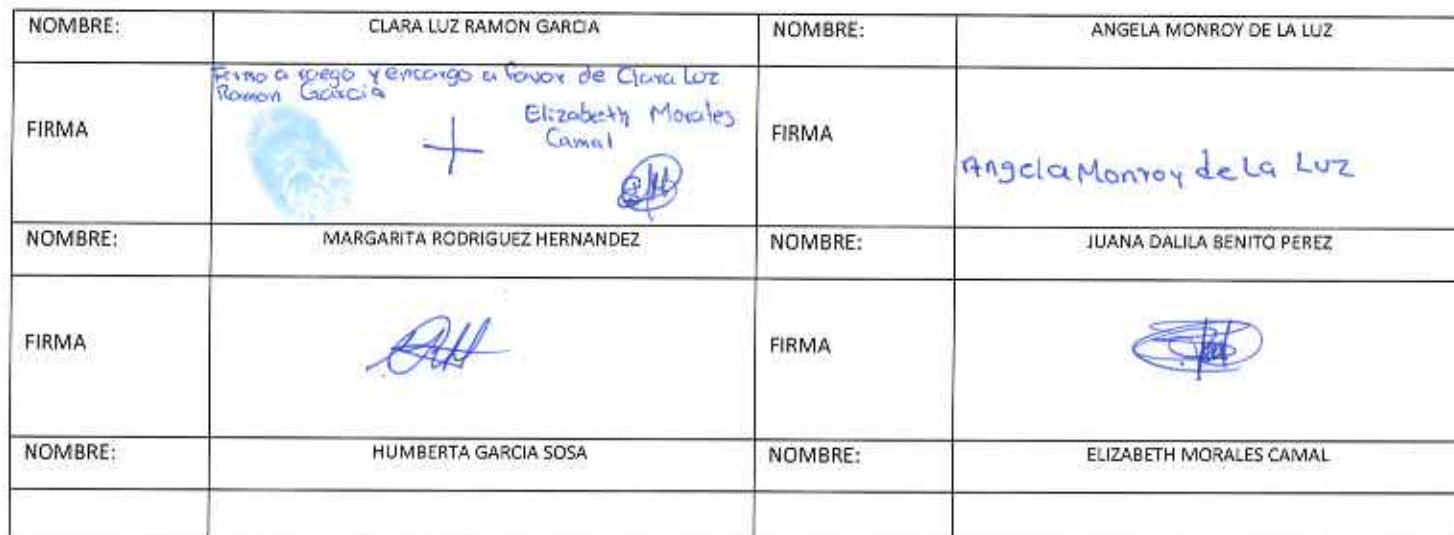 NOMBRE: CLARA LUZ RAMON GARCIA NOMBRE: ANGELA MONROY DE LA LUZ
Firmo a ruego y encargo a favor de Clara Luz
Ramon Garcia
Elizabeth Morales
Camal
FIRMA
FIRMA
Angela Monroy de La Luz
NOMBRE: MARGARITA RODRIGUEZ HERNANDEZ NOMBRE: JUANA DALILA BENITO PEREZ
FIRMA FIRMA
NOMBRE: HUMBERTA GARCIA SOSA NOMBRE: ELIZABETH MORALES CAMAL